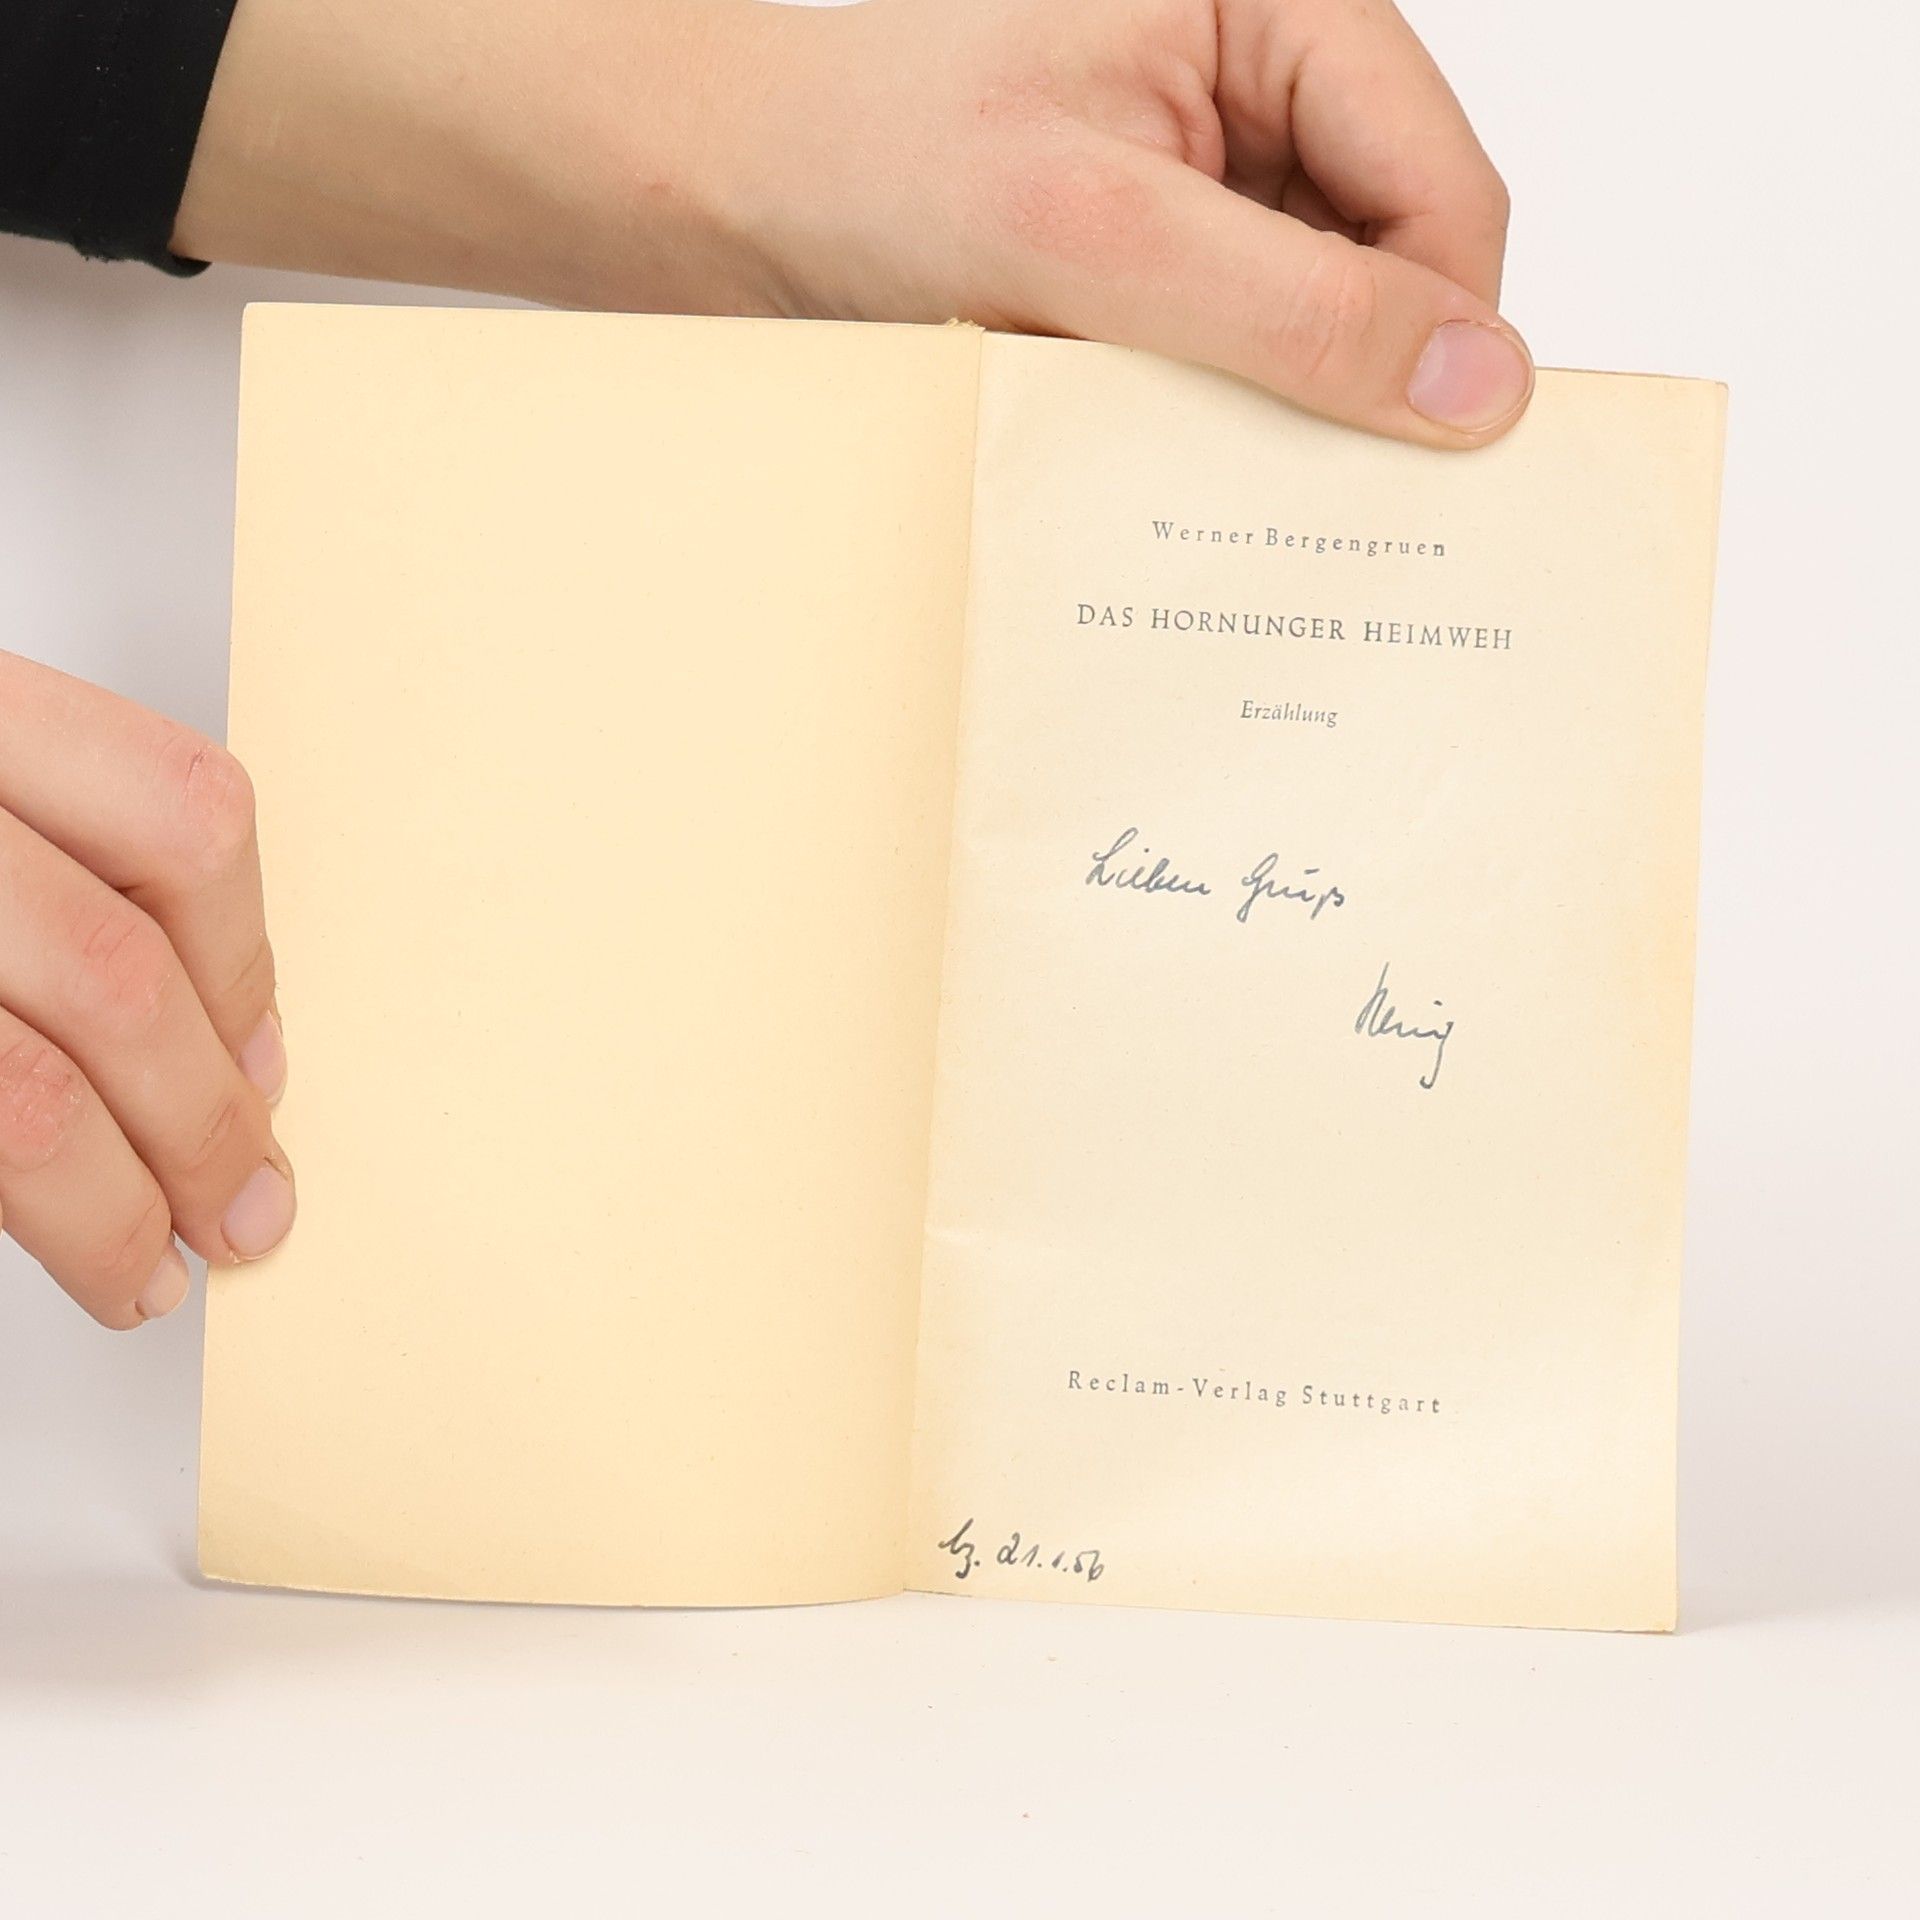 Werner Bergengruen
DAS HORNUNGER HEIMWEH
Erzählung
Lieben Gruß
Reclam-Verlag Stuttgart
21.1.56